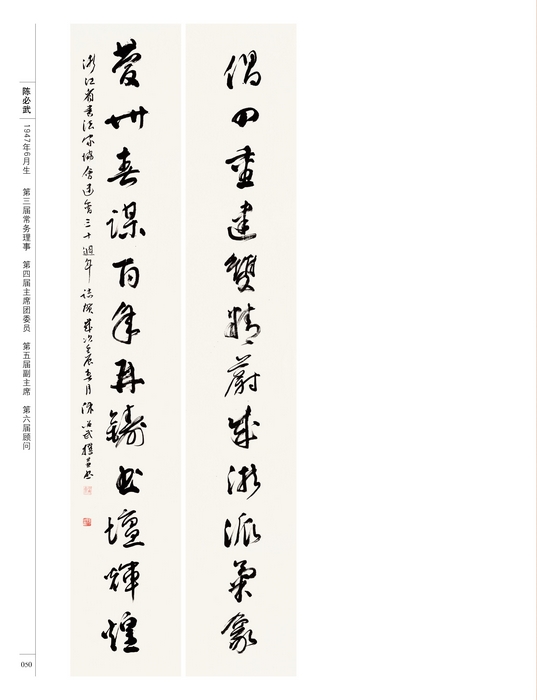 倡四重建双精蔚成浙派气象
庆卅春谋百年再铸书坛辉煌
浙江省书法家协会建会三十週年志贺 岁次壬辰春月 陈必武撰并书
陈必武
1947年6月生 第三届常务理事 第四届主席团委员 第五届副主席 第六届顾问
050